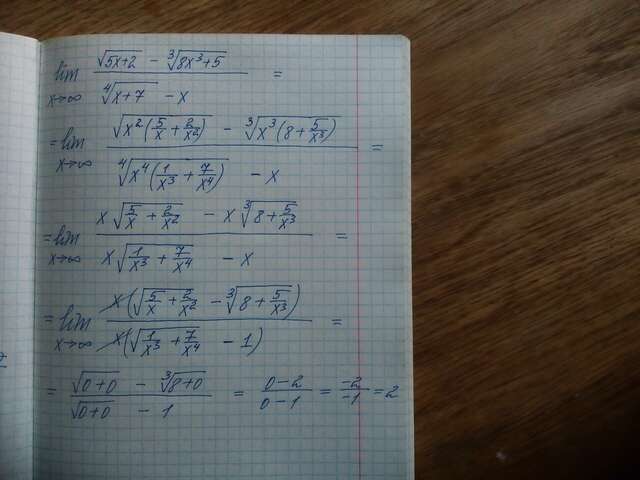 lim x→∞ (√(5x+2) − ∛(8x³+5)) / (∜(x+7) − x) =
= lim x→∞ (√(x²(5/x + 2/x²)) − ∛(x³(8 + 5/x³))) / (∜(x⁴(1/x³ + 7/x⁴)) − x) =
= lim x→∞ (x√(5/x + 2/x²) − x∛(8 + 5/x³)) / (x√(1/x³ + 7/x⁴) − x) =
= lim x→∞ (x(√(5/x + 2/x²) − ∛(8 + 5/x³))) / (x(√(1/x³ + 7/x⁴) − 1)) =
= (√(0+0) − ∛(8+0)) / (√(0+0) − 1) = (0−2)/(0−1) = −2/−1 = 2